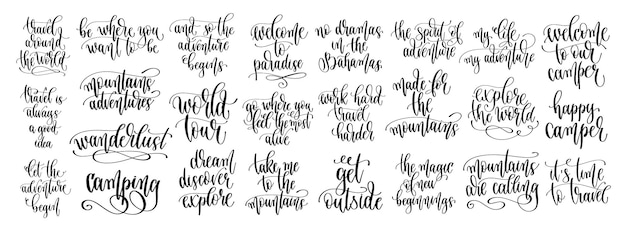 travel
around
the world
travel is
always
a good
idea
let the
adventure
begin
be where you
want to be
mountains
adventures
wanderlust
camping
and so the
adventure
begins
world
tour
dream
discover
explore
welcome
to
paradise
go where you
feel the most
alive
take me
to the
mountains
no dramas
in the
Bahamas
work hard
travel
harder
get
outside
the spirit of
adventure
made for
the
mountains
the magic
of new
beginnings
my life
my adventure
explore
the world
mountains
are calling
welcome
to our
camper
happy
camper
it's time
to travel